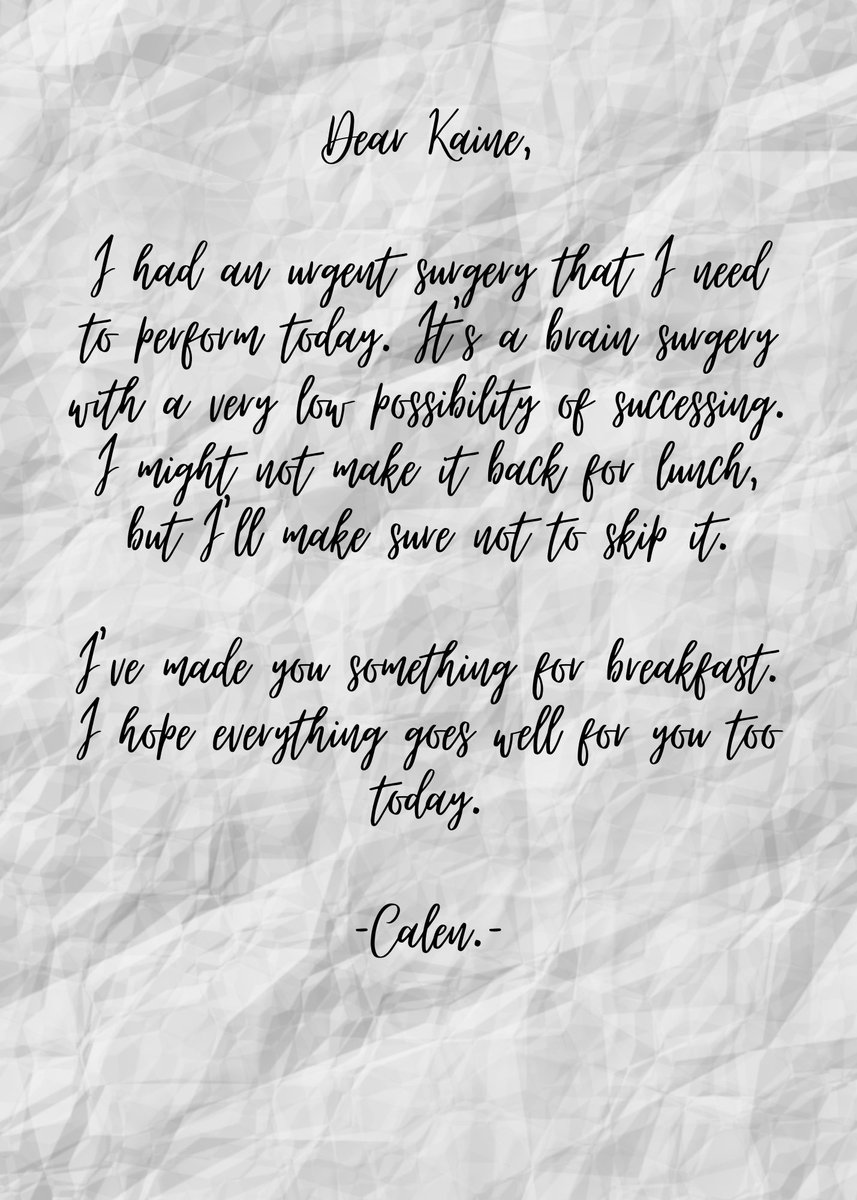 Dear Kaine,
I had an urgent surgery that I need
to perform today. It's a brain surgery
with a very low possibility of successing.
I might not make it back for lunch,
but I'll make sure not to skip it.
I've made you something for breakfast.
I hope everything goes well for you too
today.
-Calen.-